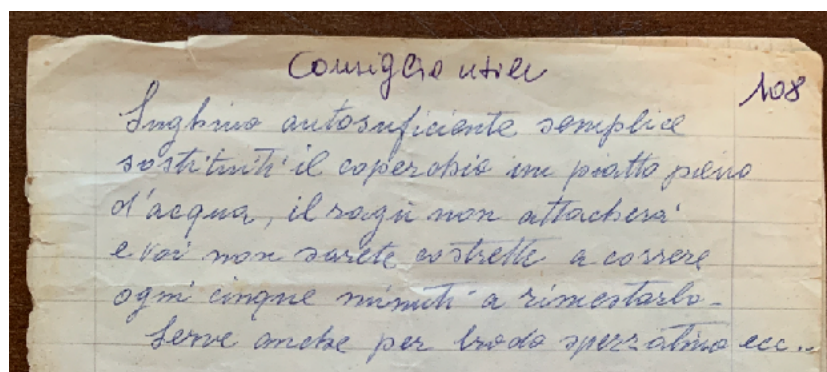 Consiglio utile
108
Sughino autosuficiente semplice
sostituiti il coperchio un piatto pieno
d'acqua, il ragù non attacherà
e voi non sarete costrette a correre
ogni cinque minuti a rimestarlo-
Serve anche per brodo spezzatino ecc..